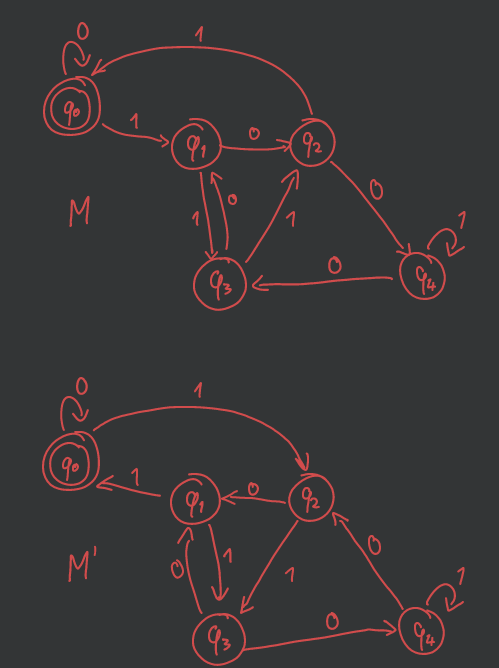 0
1
q0
1
q1
0
q2
M
1
0
1
0
q3
0
q4
1
0
1
q0
1
q1
0
q2
M'
0
1
1
0
q3
0
q4
1